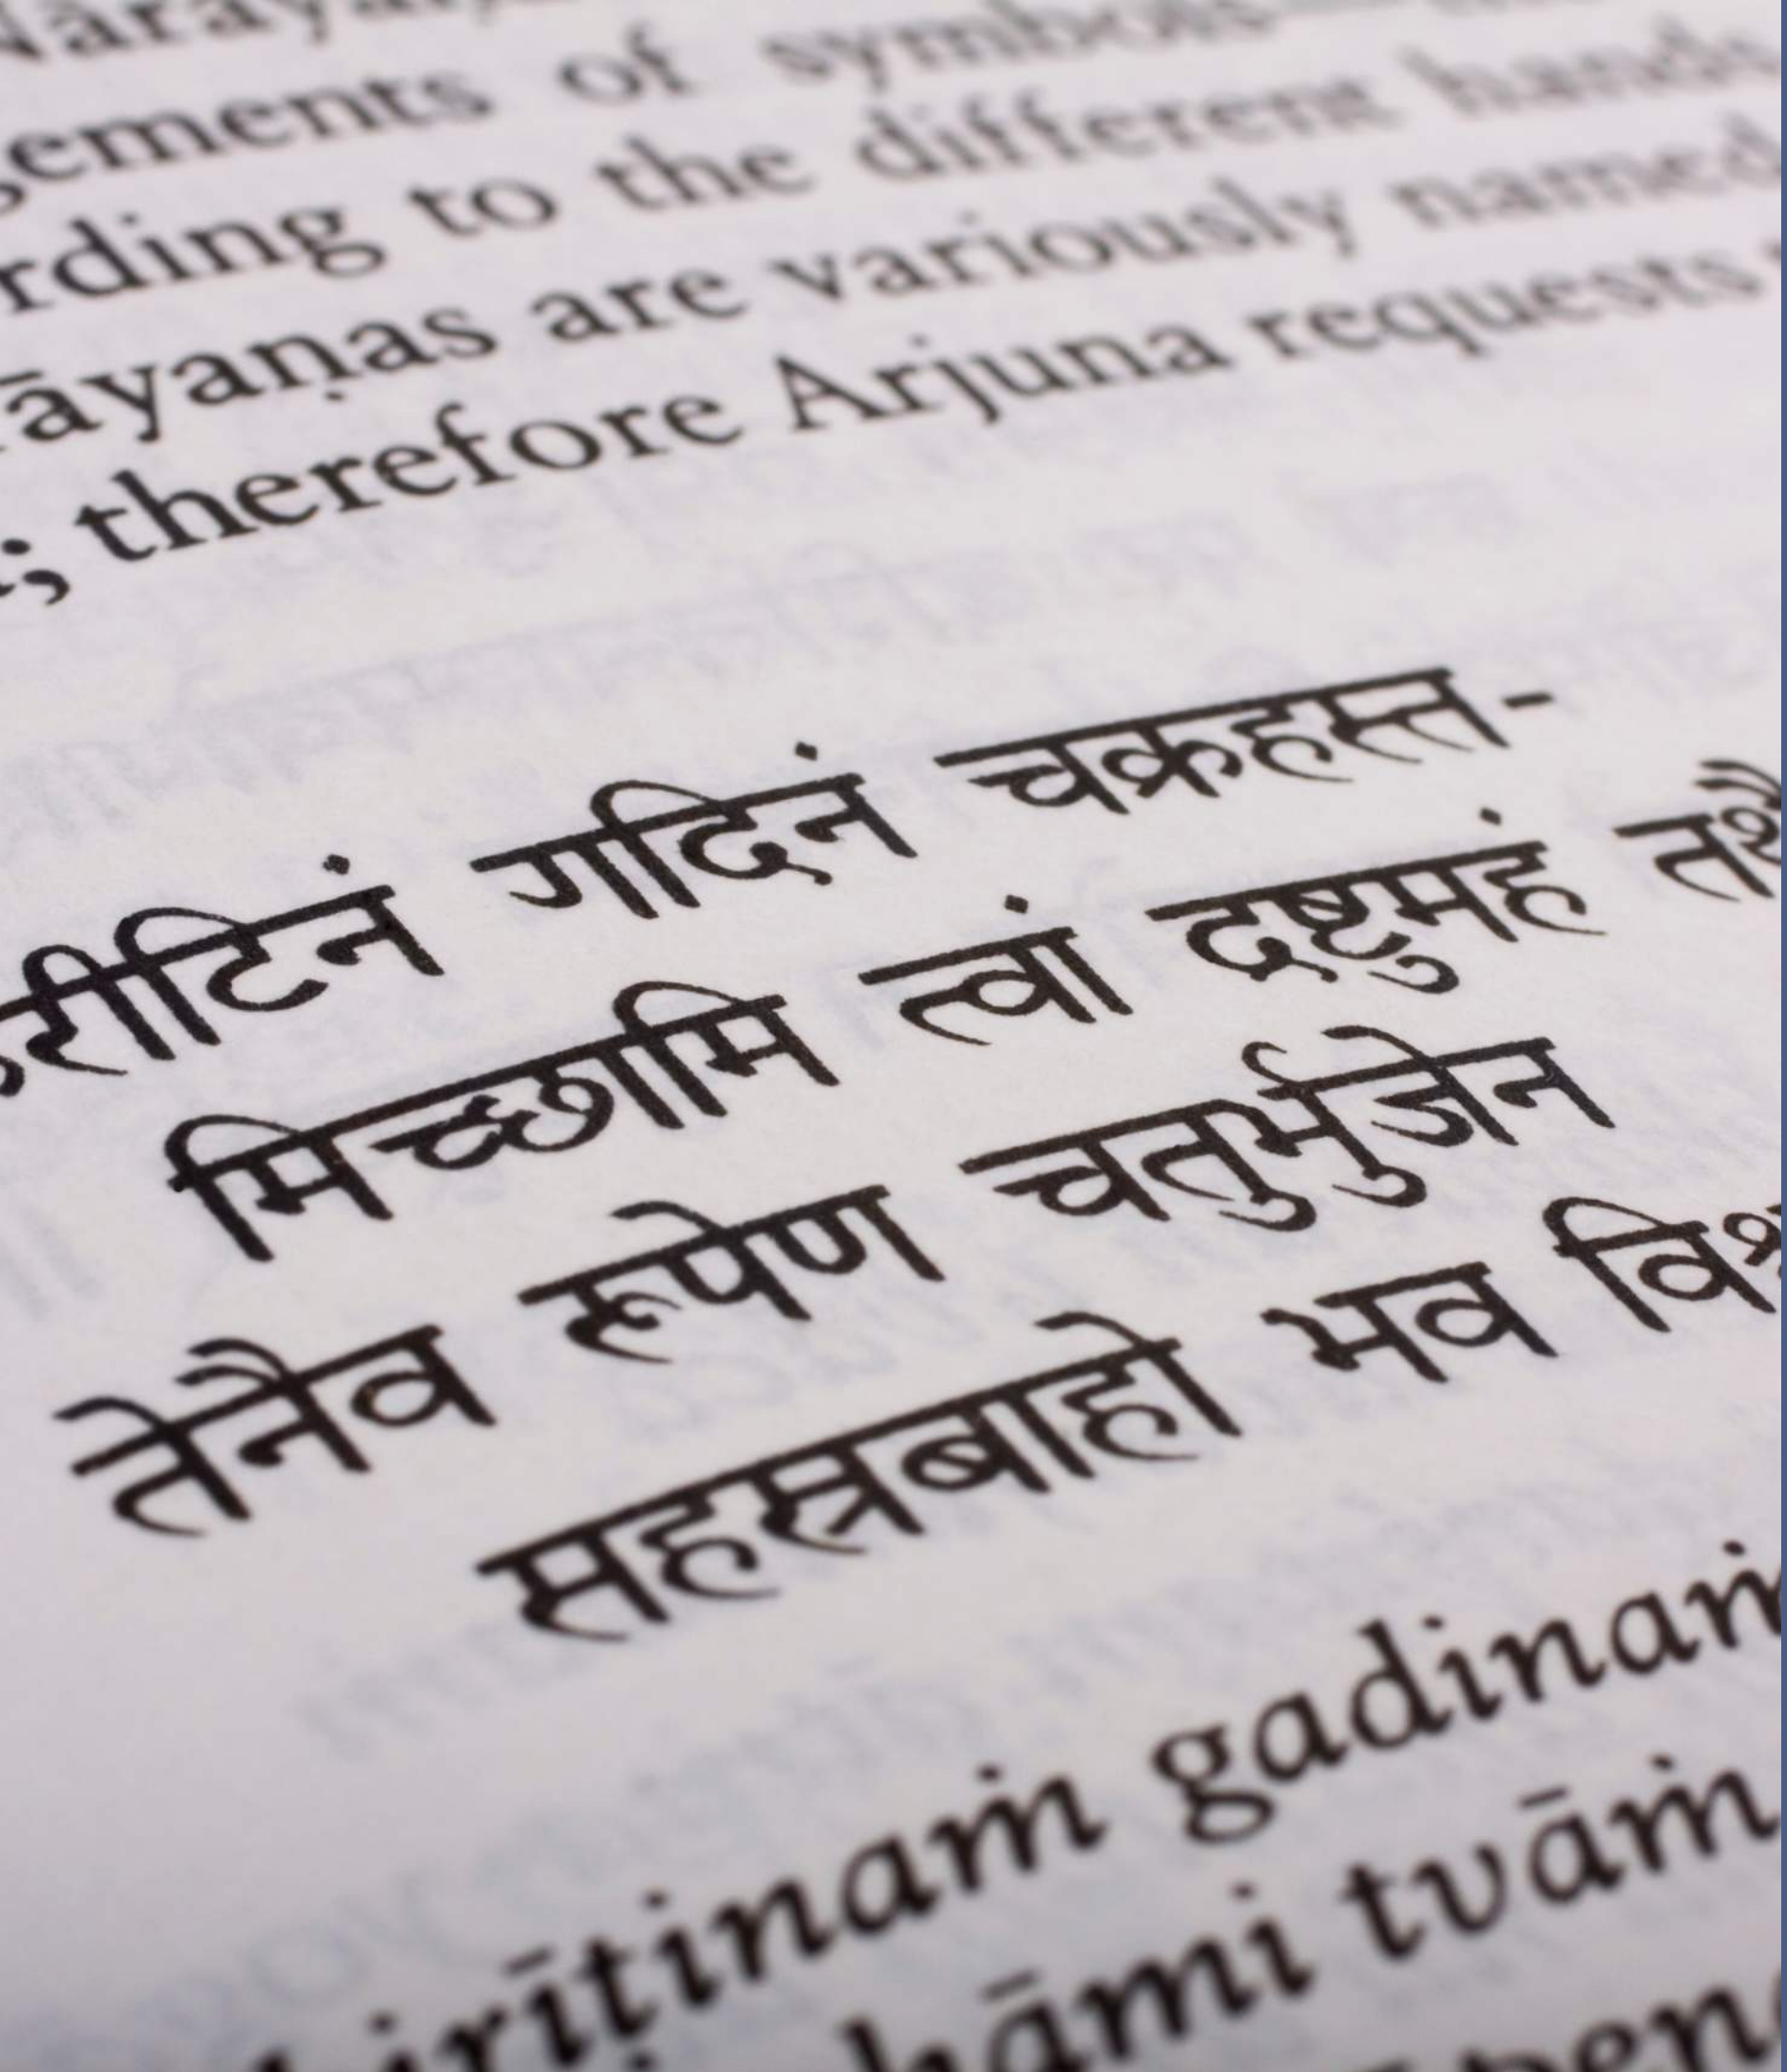 Nārāyaṇ
gements of symbols
rding to the different hands
āyaṇas are variously named
; therefore Arjuna requests
रीटिनं गदिनं चक्रहस्त-
मिच्छामि त्वां द्रष्टुमहं तथै
तेनैव रूपेण चतुर्भुजेन
सहस्रबाहो भव विश्व
irīṭinaṁ gadinaṁ
hāmi tvāṁ
peṇa